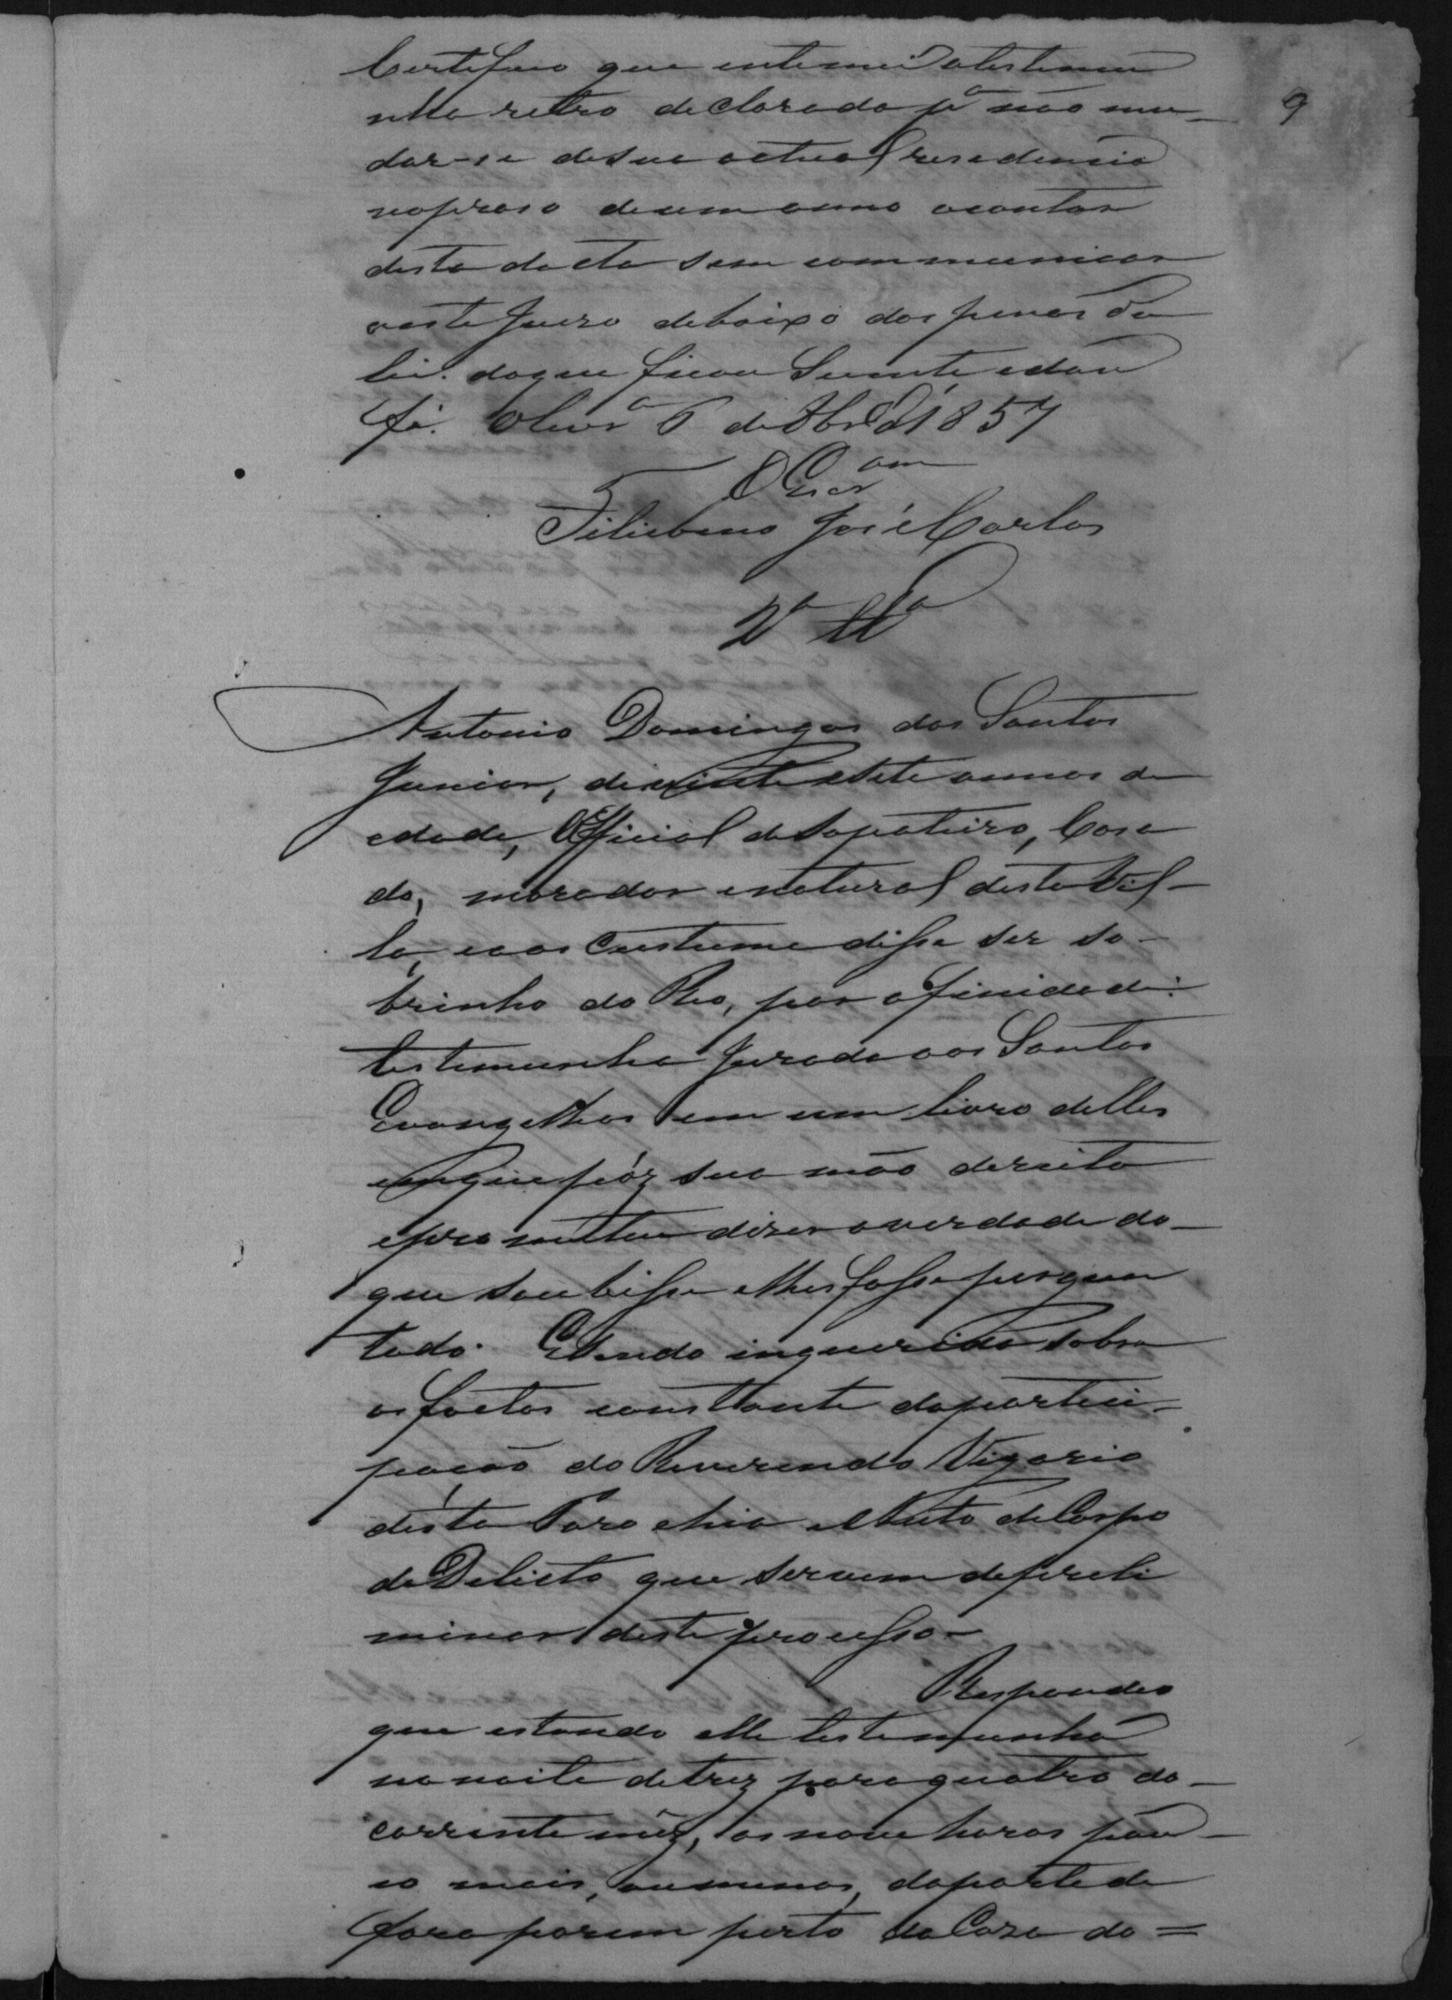 Certifico que intimei a testemu
nha retro declarada pª não mu-
dar-se de sua actual residencia
no praso de um anno a contar
desta dacta sem communicar
a este Juizo debaixo das penas da
lei. do que ficou sciente e dou
fé. Olivrª 6 de 8brº d'1857
O Escrªm
Felisbino José Carlos
2ª Tª
9
Antonio Domingos dos Santos
Junior, de vinte e sete annos de
edade, Official de Sapateiro, Casa
do, morador e natural desta Vil-
la, e aos Custume disse ser so-
brinho do Reo, por afinidade:
testemunha Jurada aos Santos
Evangelhos em um livro delles
em que póz sua mão dereita
e prometteu dizer a verdade do-
que soubisse e lhes fosse pergun
tado. E sendo inquerido sobre
os factos constante da partici-
pação do Reverendo Vigario
désta Parochia e Auto de Corpo
de Delicto que servem de preli
minar deste processo-
Respondeo
que estando elle testemunha
na noite de trez para quatro do-
corrente mêz, as nove horas pou-
co mais, ou menos, da parte de
fora porem perto da Casa do=